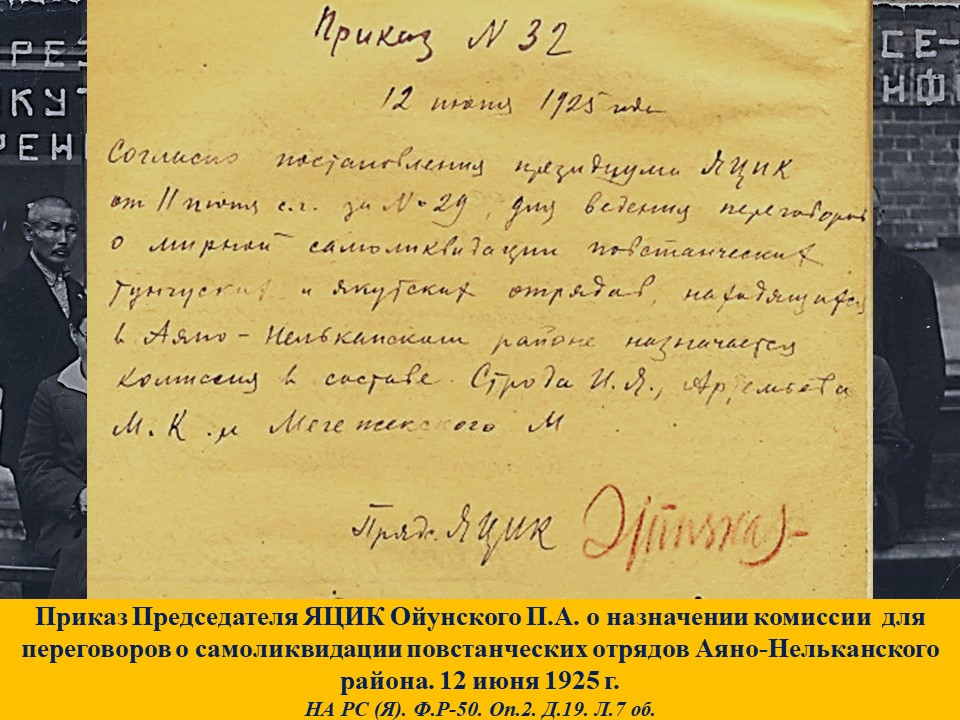 РЕЗ
КУТ
РЕН
СЕ-
НФ
Приказ N 32
12 июня 1925 года
Согласно постановления президиума ЯЦИК
от 11 июня с.г. за № 29, для ведения переговоров
о мирной самоликвидации повстанческих
тунгуских и якутских отрядов, находящихся
в Аяно-Нельканском районе назначается
комиссия в составе Строда И.Я., Артемьева
М.К. и Мегежекского М
Пред. ЯЦИК
Приказ Председателя ЯЦИК Ойунского П.А. о назначении комиссии для
переговоров о самоликвидации повстанческих отрядов Аяно-Нельканского
района. 12 июня 1925 г.
НА РС (Я). Ф.Р-50. Оп.2. Д.19. Л.7 об.